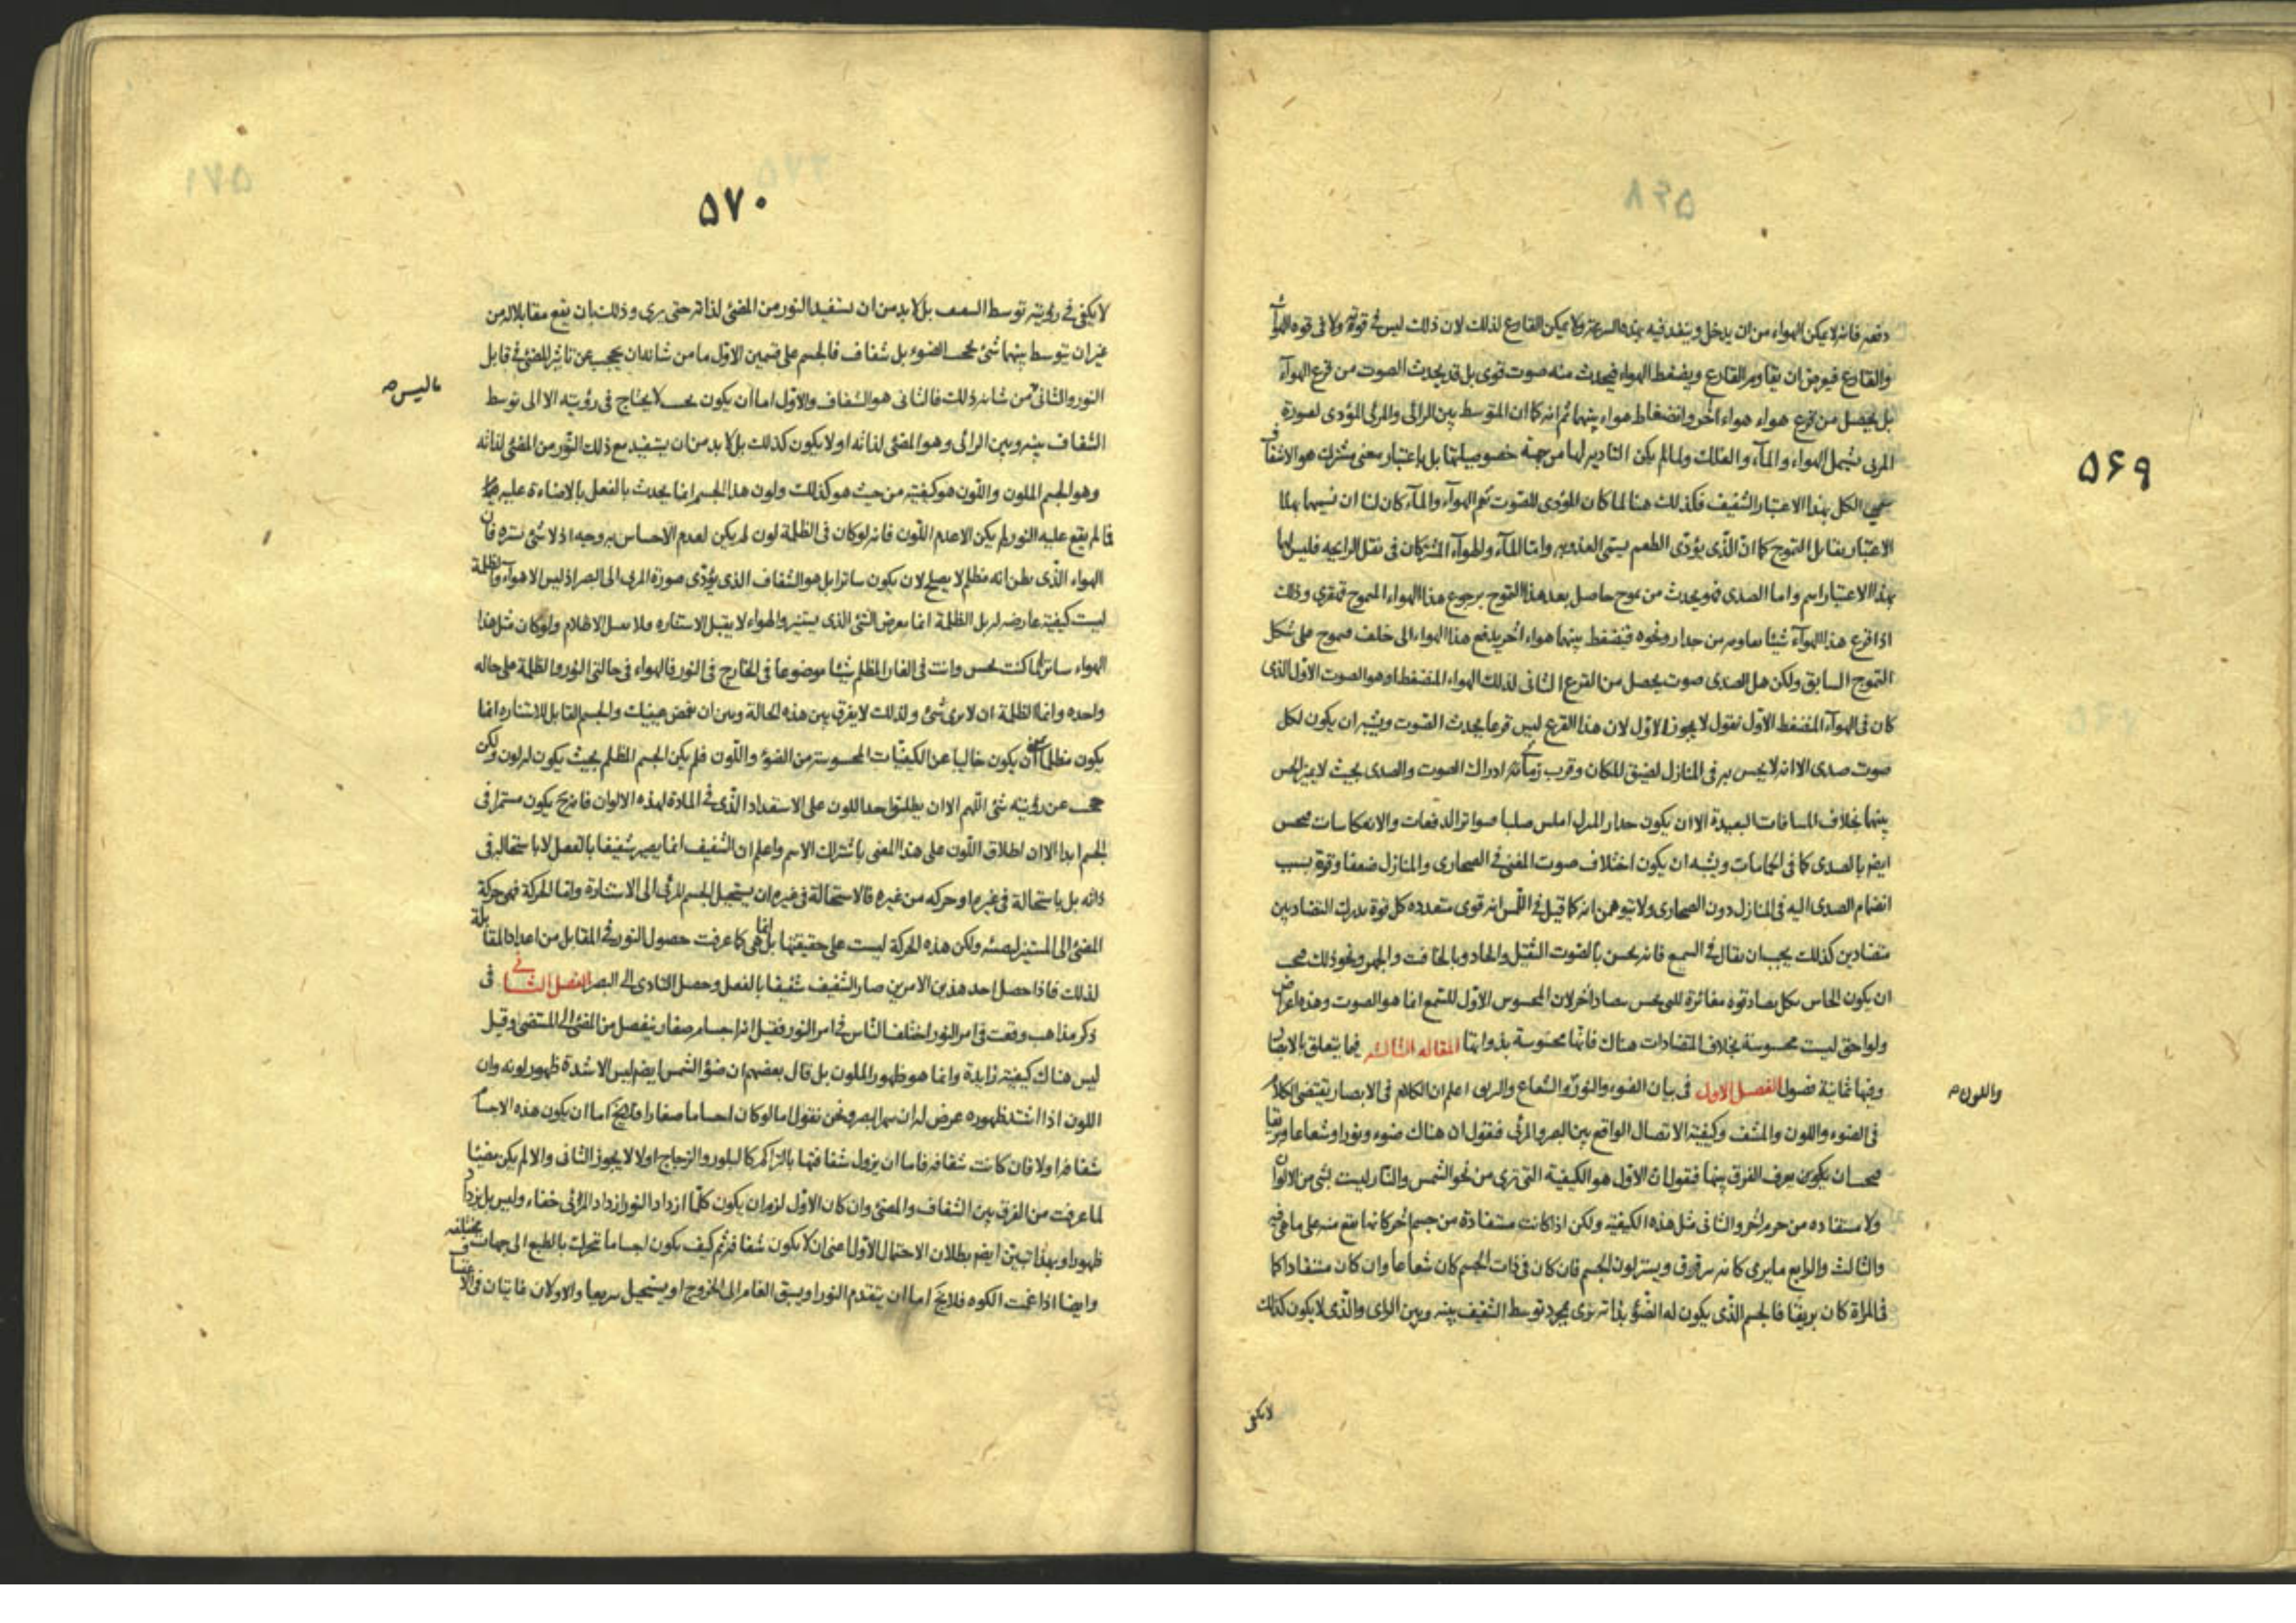 ۵۶۹
دفعه فانه لا يمكن الهواء من ان يدخل وينفد فيه بهذه السرعة ولا يمكن القارع لذلك لان ذلك ليس فى قوته ولا فى قوه الهواء
والقارع فيعرض ان يقاوم القارع ويضغط الهواء فيحدث منه صوت قوى بل قد يحدث الصوت من قرع الهوآء
بل يحصل من قرع هواء هواء آخر وانضغاط هواء بينهما ثم انه كما ان المتوسط بين الرائى والمرئى المؤدى لصورة
المرئى يشمل الهواء والمآء والفلك ولما لم يكن التأدية لها من جهة خصوصياتها بل باعتبار معنى مشترك هو الاشفاف
سمى الكل بهذا الاعتبار الشفيف فكذلك هنا لما كان المؤدى للصوت يعم الهوآء والمآء كان لنا ان نسميها بهذا
الاعتبار بقابل التموج كما انّ الّذى يؤدّى الطعم يسمى العذوبه وامّا المآء والهوآء المشتركان فى نقل الرايحه فليس لهما
بهذا الاعتبار اسم واما الصدى فهو يحدث من تموج حاصل بعد هذا التموج برجوع هذا الهواء المتموج قهقرى وذلك
اذا قرع هذا الهوآء شيئا يقاومه من جدار ونحوه فينضغط بينهما هواء آخر يدفع هذا الهواء الى خلف فيموج على شكل
التموج السابق ولكن هل الصدى صوت يحصل من القرع الثانى لذلك الهواء المنضغط او هو الصوت الاوّل الذى
كان فى الهوآء المنضغط الاوّل نقول لا يجوز الاوّل لان هذا القرع ليس قرعا يحدث الصوت ويشبه ان يكون لكل
صوت صدى الا انه لا يحس به فى المنازل لضيق المكان وقرب زمانى ادراك الصوت والصدى بحيث لا يميز الحس
بينهما بخلاف المسافات البعيدة الا ان يكون جدار المنزل املس صلبا متواتر الدفعات والانعكاسات فيحس
ايضا بالصدى كما فى الحمامات ويشبه ان يكون اختلاف صوت المغنى فى الصحارى والمنازل ضعفا وقوة بسبب
انضمام الصدى اليه فى المنازل دون الصحارى ولا تتوهمن انه كما قيل فى اللّمس انه قوى متعدده كل قوة يدرك التضاد بين
متضادين كذلك يجب ان يقال فى السمع فانه يحس بالصوت الثقيل والحاد وبالخافت والجهر ونحو ذلك فيجب
ان يكون الحاس بكل تضاد قوة مغائرة للتى تحس بتضاد آخر لان المحسوس الاوّل للسمع انما هو الصوت وهذه اعراض
ولواحق ليست محسوسة بخلاف المتضادات هناك فانها محسوسة بذواتها المقاله الثالثه فيما يتعلق بالابصار
وفيها ثمانية فصول الفصل الاول فى بيان الضوء والنور والشعاع والبريق اعلم ان الكلام فى الابصار يقتضى الكلام
واللون
فى الضوء واللون والمشف وكيفية الاتصال الواقع بين البصر والمرئى فنقول ان هناك ضوء ونورا وشعاعا وبريقا
فيجب ان يكون يعرف الفرق بينها فنقول ان الاول هو الكيفية التى ترى من نحو الشمس والنار ليست بشى من الالوان
ولا مستفاده من جرم آخر والثانى مثل هذه الكيفية ولكن اذا كانت مستفادة من جسم آخر كانها يقع منه على ما هى فيه
والثالث والرابع ما يرى كانه يترقرق ويستر لون الجسم فان كان فى ذات الجسم كان شعاعا وان كان مستفادا كما
فى المرآة كان بريقا فالجسم الذّى يكون له الضّوء بذاته يرى بمجرد توسط الشفيف بينه وبين الرائى والذّى لا يكون كذلك
لا يكفى
۵۷۰
لا يكفى فى رؤيته توسط الشفيف بل لا بد من ان يستفيد النور من المضئ لذاته حتى يرى وذلك بان يقع مقابلا له من
غير ان يتوسط بينهما شئ يحجب الضوء بل شفاف فالجسم على قسمين الاوّل ما من شانه ان يحجب عن تاثير المضئ فى قابل
النور والثانى من شانه ذلك فالثانى هو الشفاف والاوّل اما ان يكون بحيث لا يحتاج فى رؤيته الا الى توسط
ما ليس
الشفاف بينه وبين الرائى وهو المضئ لذاته او لا يكون كذلك بل لا بد من ان يستفيد مع ذلك النّور من المضئ لذاته
وهو الجسم الملون واللّون هو كيفيته من حيث هو كذلك ولون هذا الجسم انما يحدث بالفعل بالاضاءة عليه
فما لم يقع عليه النور لم يكن الا عدم اللّون فانه لو كان فى الظلمة لون لم يكن لعدم الاحساس به وجه اذ لا شئ يستره فان
الهواء الّذى يظن انه مظلم لا يصلح لان يكون ساترا بل هو الشفاف الذى يؤدّى صورة المرئى الى البصر اذ ليس الا هوآء والظلمة
ليست كيفية عارضه له بل الظلمة انما يعرض الشئ الذى يستنير والهواء لا يقبل الاستناره ولا يقبل الاظلام ولو كان مثل هذا
الهواء ساترا لما كنت تحس وانت فى الغار المظلم شيئا موضوعا فى الخارج فى النور فالهواء فى حالتى النور والظلمة على حاله
واحده وانما الظلمة ان لا يرى شئ ولذلك لا يفرق بين هذه الحالة وبين ان تغمض عينيك والجسم القابل للاستناره انما
يكون مظلما بمعنى ان يكون خاليا عن الكيفيّات المحسوسة من الضوء واللّون فلم يكن الجسم المظلم بحيث يكون له لون ولكن
يحجب عن رؤيته شئ اللهم الا ان يطلق احد اللون على الاستعداد الّذى فى المادة لهذه الالوان فانه ح يكون مستمرا فى
الجسم ابدا الا ان اطلاق اللّون على هذا المعنى باشتراك الاسم واعلم ان الشفيف انما يصير شفيفا بالفعل لا باستحاله فى
ذاته بل باستحالة فى غيره او حركه من غيره فالاستحالة فى غيره ان يستحيل الجسم المرئى الى الاستنارة وامّا الحركة فهى حركة
المضئ الى المستنير ليضيئه ولكن هذه الحركة ليست على حقيقتها بل انما هى كما عرفت حصول النور فى المقابل من اعداد المقابلة
لذلك فاذا حصل احد هذين الامرين صار الشفيف شفيفا بالفعل وحصل التادى الى البصر الفصل الثانى فى
ذكر مذاهب وقعت فى امر النور اختلف الناس فى امر النور فقيل انه اجسام صغار ينفصل من المضئ الى المستضئ وقيل
ليس هناك كيفية زايدة وانما هو ظهور الملون بل قال بعضهم ان ضوء الشمس ايضا ليس الا شدة ظهور لونه وان
اللون اذا اشتد ظهوره عرض له ان يبهر البصر ونحن نقول اما لو كان اجساما صغارا فلا يخ اما ان يكون هذه الاجسام
شفافه او لا فان كانت شفافه فاما ان يزول شفافتها بالتراكم كالبلور والزجاج او لا لا يجوز الثانى والا لم يكن مضيئا
لما عرفت من الفرق بين الشفاف والمضئ وان كان الاوّل لزم ان يكون كلّما ازداد النور ازداد المرئى خفاء وليس بل يزداد
ظهورا وبهذا تبيّن ايضا بطلان الاحتمال الاوّل اعنى ان لا يكون شفافه ثم كيف يكون اجساما تحرك بالطبع الى جهات مختلفه
وايضا اذا غمت الكوه فلا يخ اما ان يتقدم النور او يسبق الغامر الى الخروج او يستحيل سريعا والاولان فاسدان